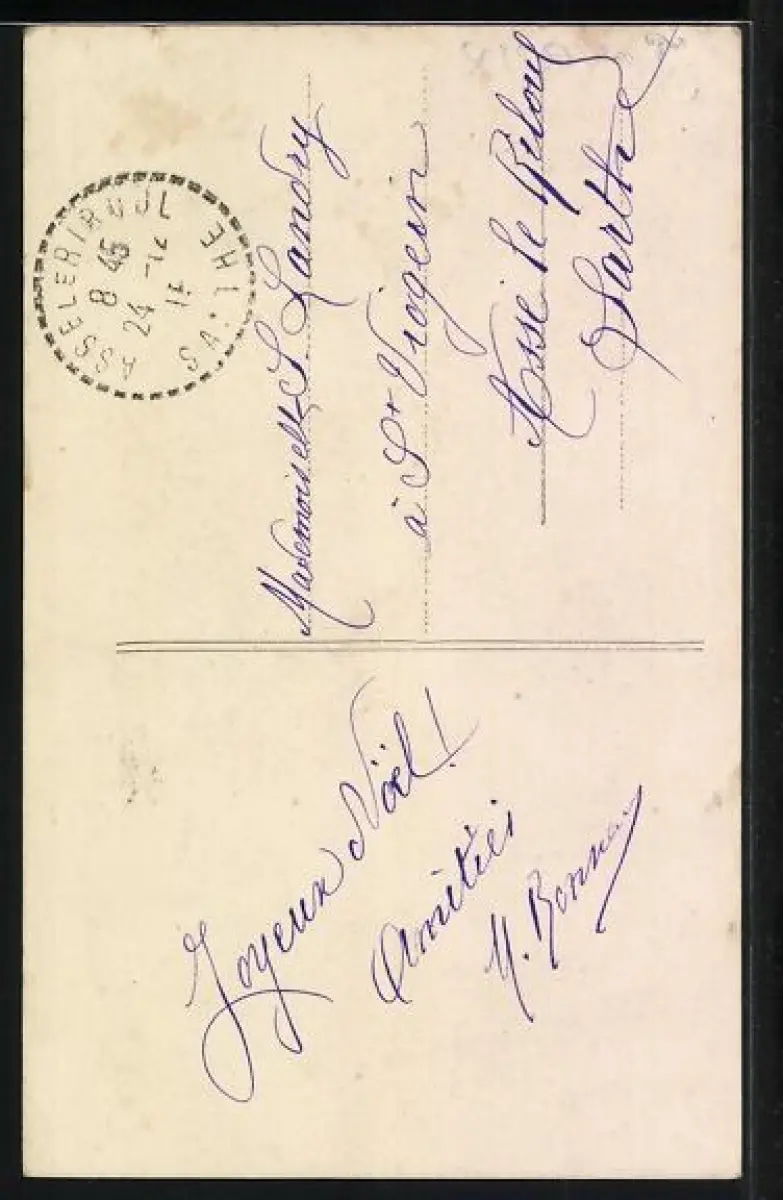 Joyeux Noël!
Amitiés
M. Bonn
Mademoiselle S. Landry
à St Viogein
Assé le Riboul
Sarthe
ASSE LE RIBOUL
8 45
24 -12
SARTHE